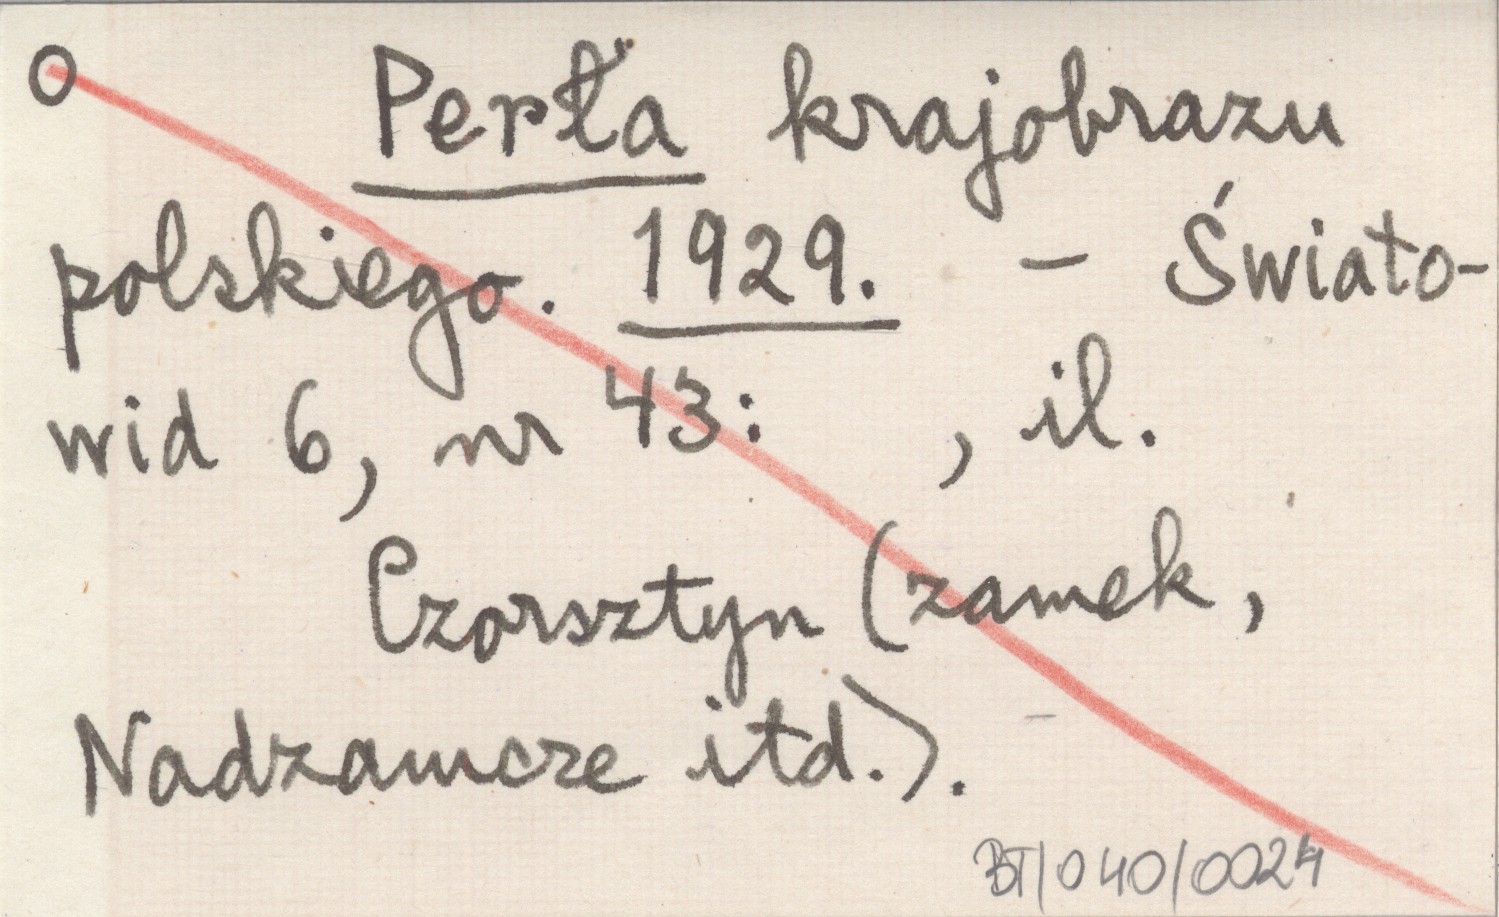 O Perła krajobrazu
polskiego. 1929. – Świato-
wid 6, nr 43: , il.
Czorsztyn (zamek,
Nadzamcze itd.).
BT/040/0024